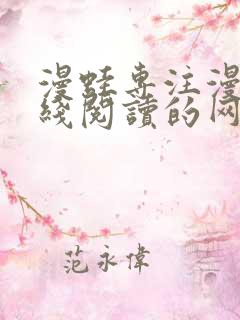 漫蛙专注漫
綫閱讀的网
范永偉